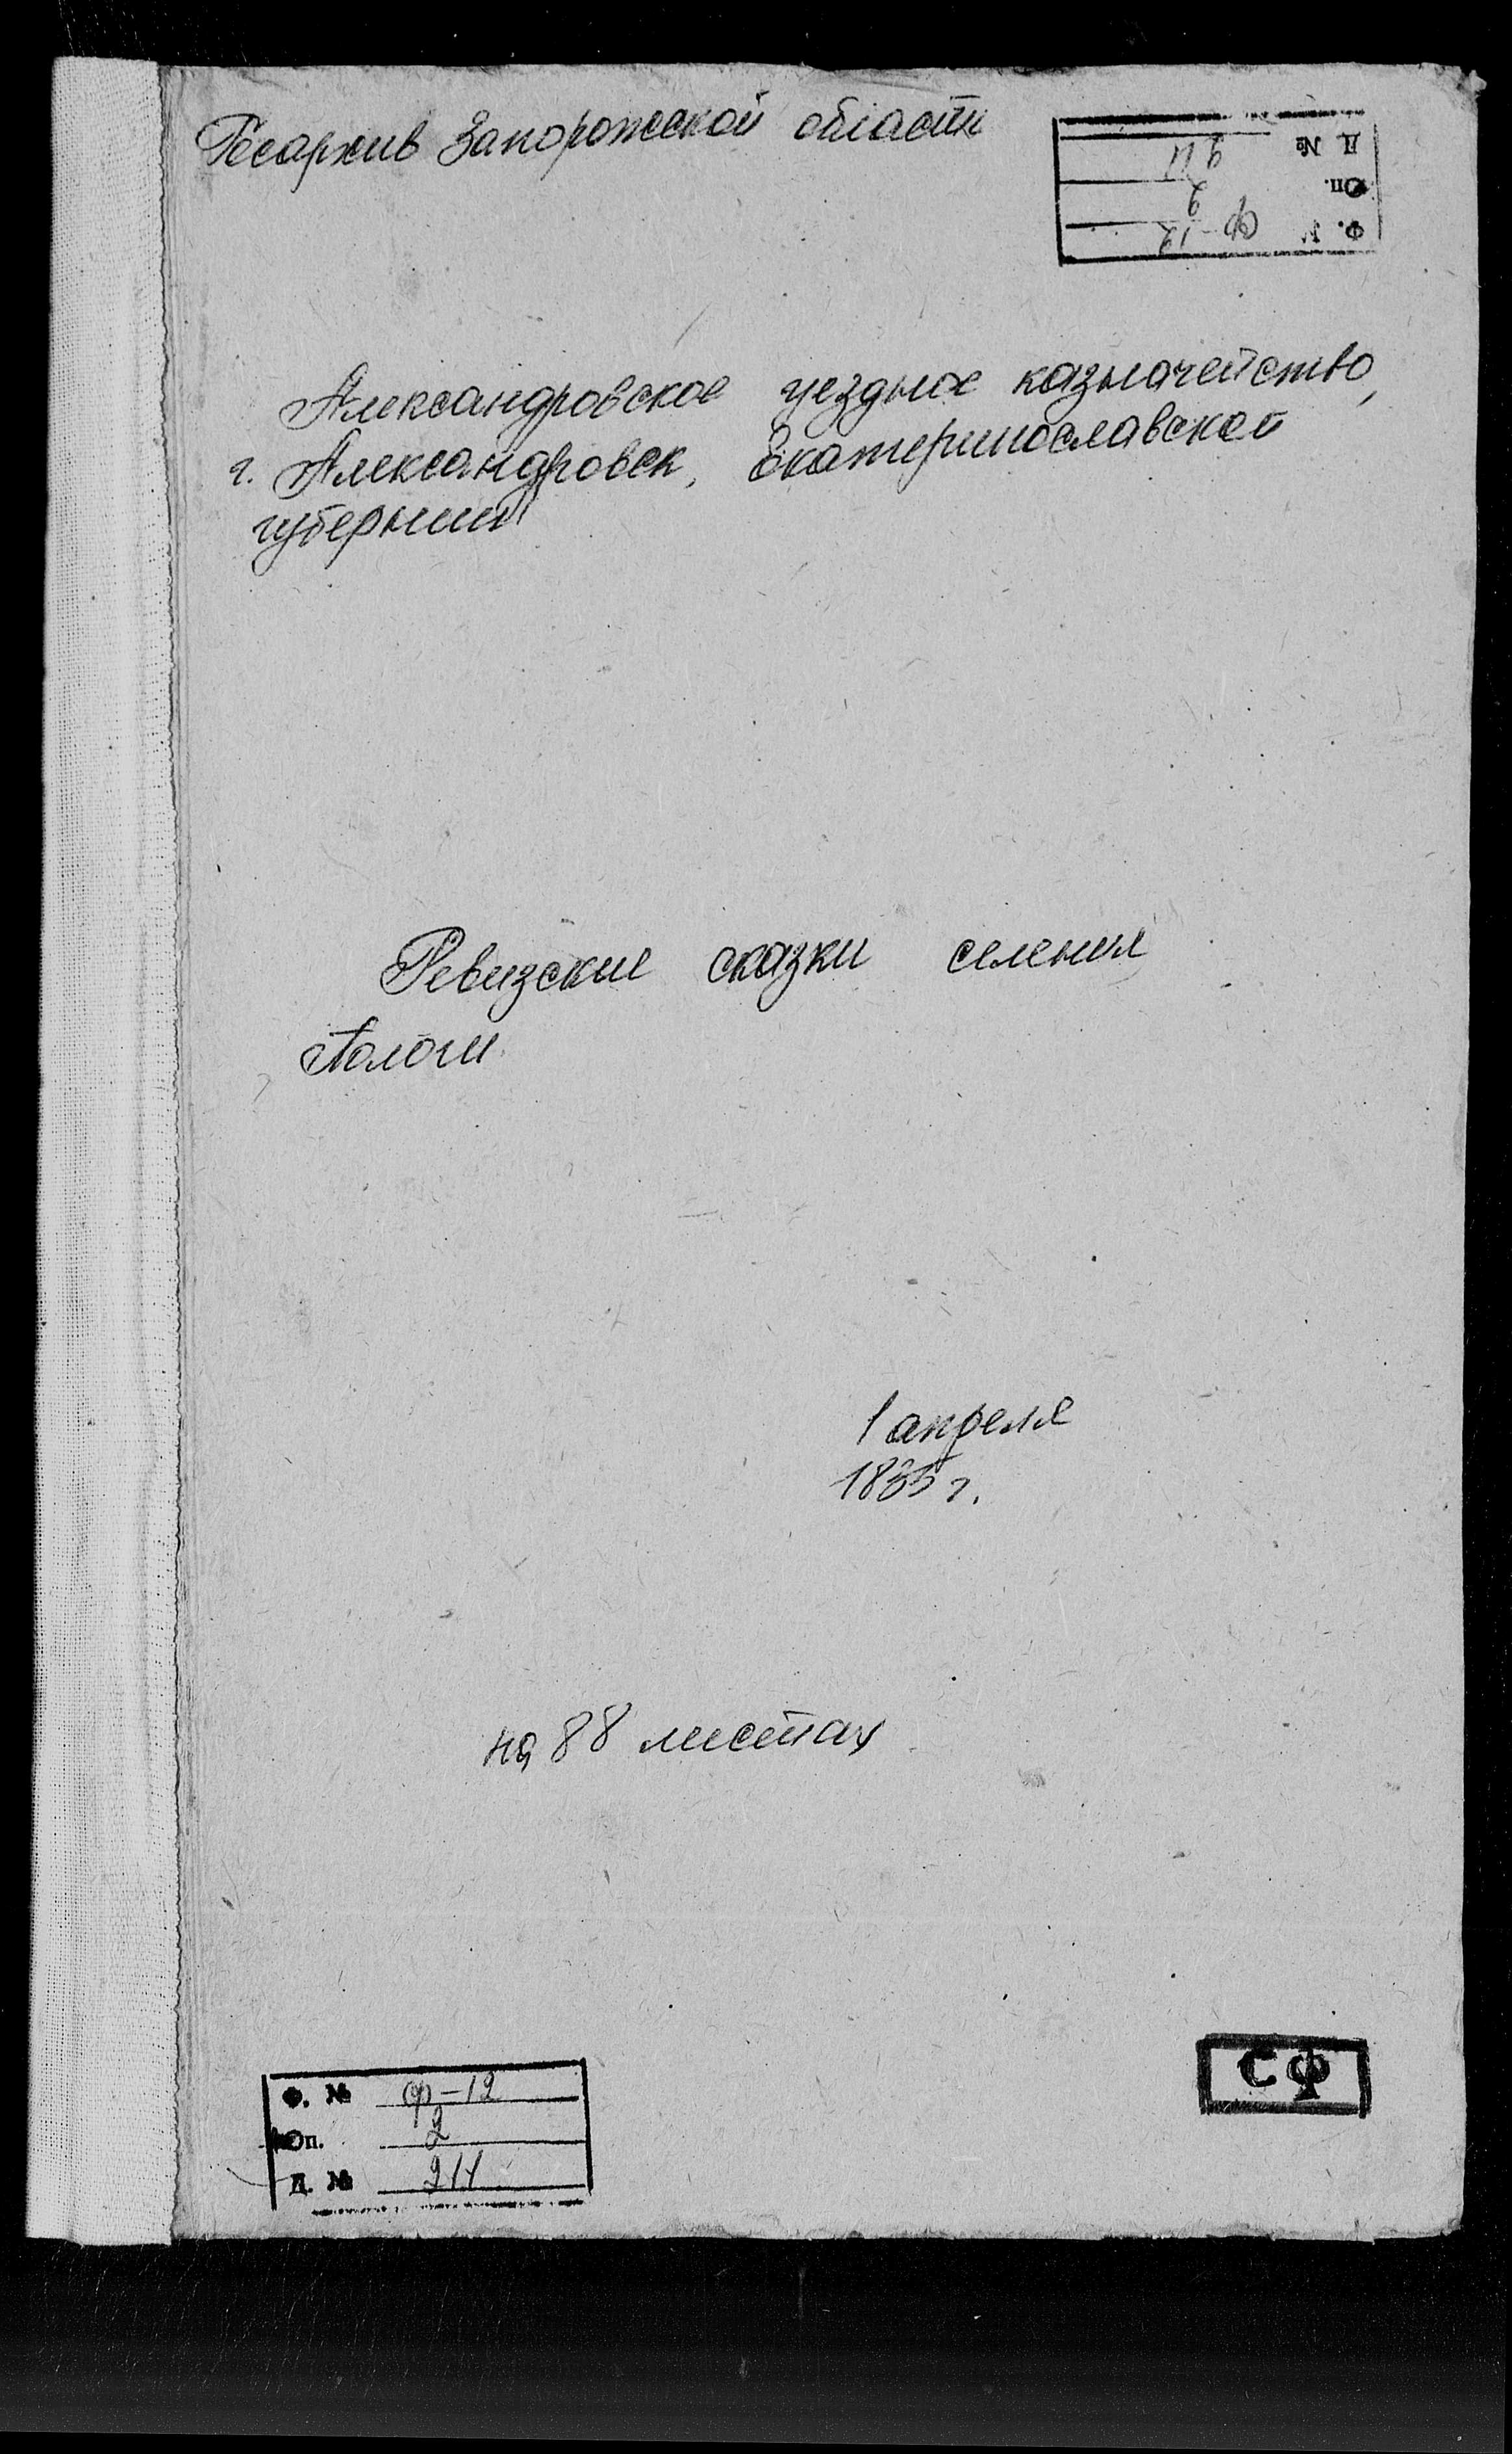 Госархив Запорожской области
Д №
211
Оп.
2
Ф. №
Ф-12
Александровское уездное казначейство,
г. Александровск, Екатеринославской
губернии
Ревизские сказки селения
Пологи
1 апреля
1835 г.
на 88 листах
СФ
Ф. № Ф-12
Оп. 2
Д. № 211